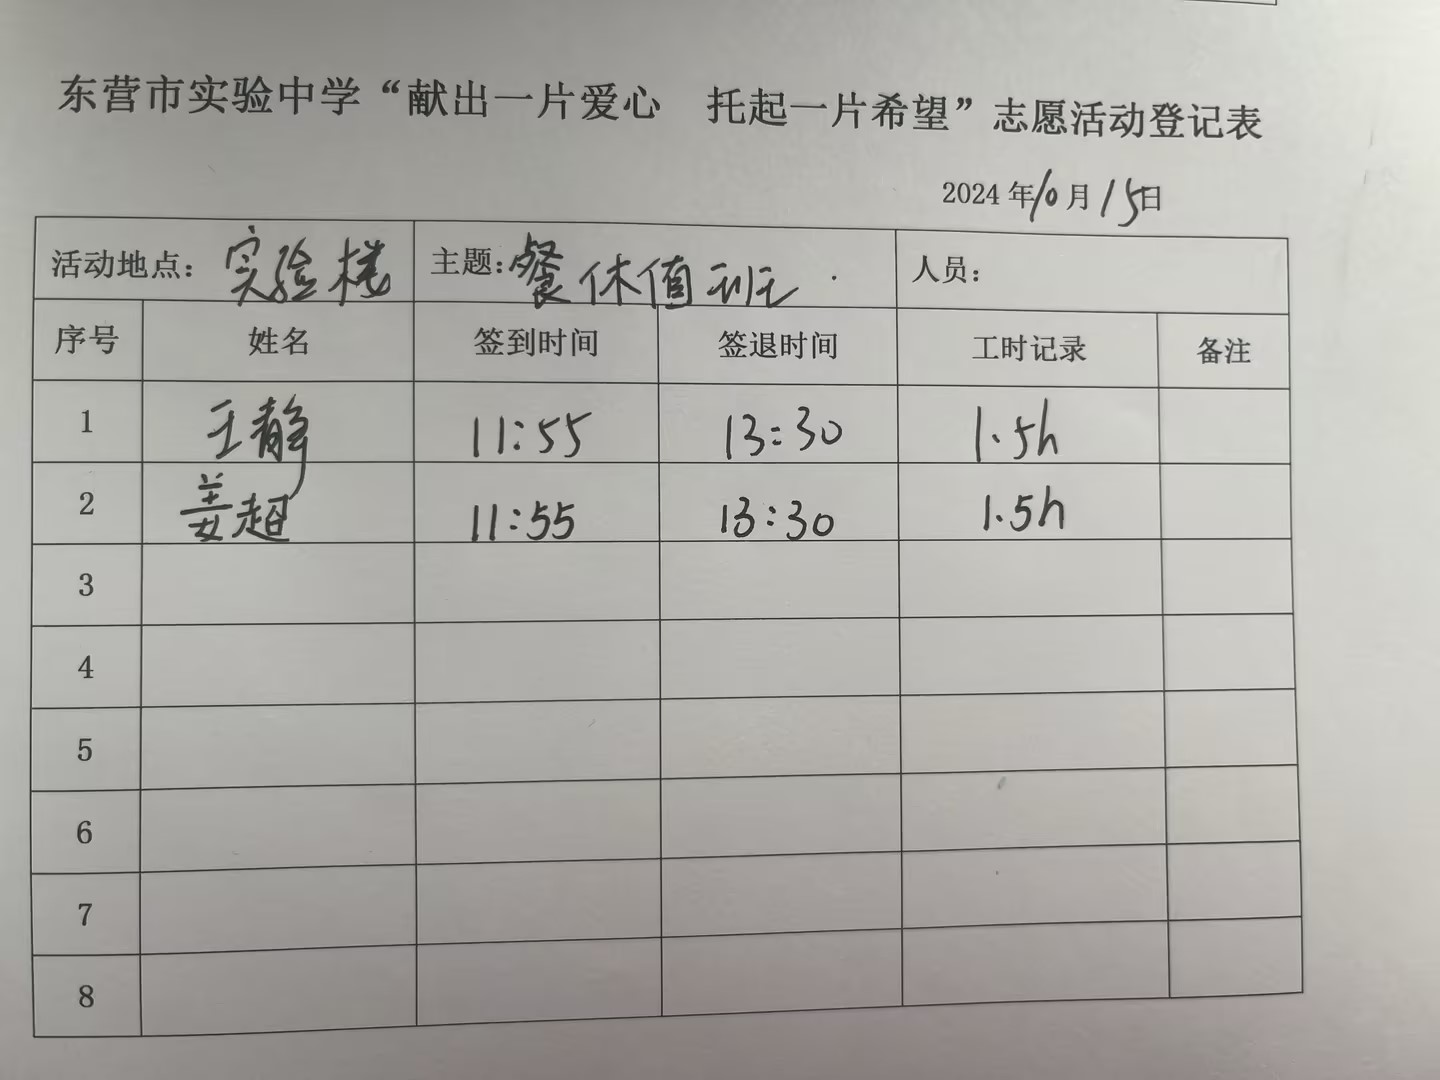 东营市实验中学“献出一片爱心 托起一片希望”志愿活动登记表
2024年10月15日
活动地点：实验楼 主题：餐休值班 人员：
序号 姓名 签到时间 签退时间 工时记录 备注
1 王静 11:55 13:30 1.5h
2 姜超 11:55 13:30 1.5h
3
4
5
6
7
8